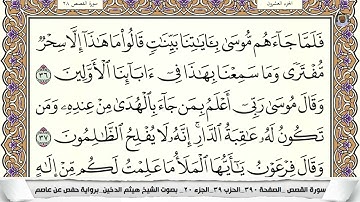 سورة القصص ٢٨
الجزء العشرون
فَلَمَّا جَآءَهُم مُّوسَىٰ بِـَٔايَـٰتِنَا بَيِّنَـٰتٍ قَالُوا۟ مَا هَـٰذَآ إِلَّا سِحْرٌ
مُّفْتَرًى وَمَا سَمِعْنَا بِهَـٰذَا فِىٓ ءَابَآئِنَا ٱلْأَوَّلِينَ ٣٦
وَقَالَ مُوسَىٰ رَبِّىٓ أَعْلَمُ بِمَن جَآءَ بِٱلْهُدَىٰ مِنْ عِندِهِۦ وَمَن
تَكُونُ لَهُۥ عَـٰقِبَةُ ٱلدَّارِ إِنَّهُۥ لَا يُفْلِحُ ٱلظَّـٰلِمُونَ ٣٧
وَقَالَ فِرْعَوْنُ يَـٰٓأَيُّهَا ٱلْمَلَأُ مَا عَلِمْتُ لَكُم مِّنْ إِلَـٰهٍ
سورة القصص _ الصفحة ٣٩٠ _ الحزب ٣٩ _ الجزء ٢٠ _ بصوت الشيخ هيثم الدخين _ برواية حفص عن عاصم